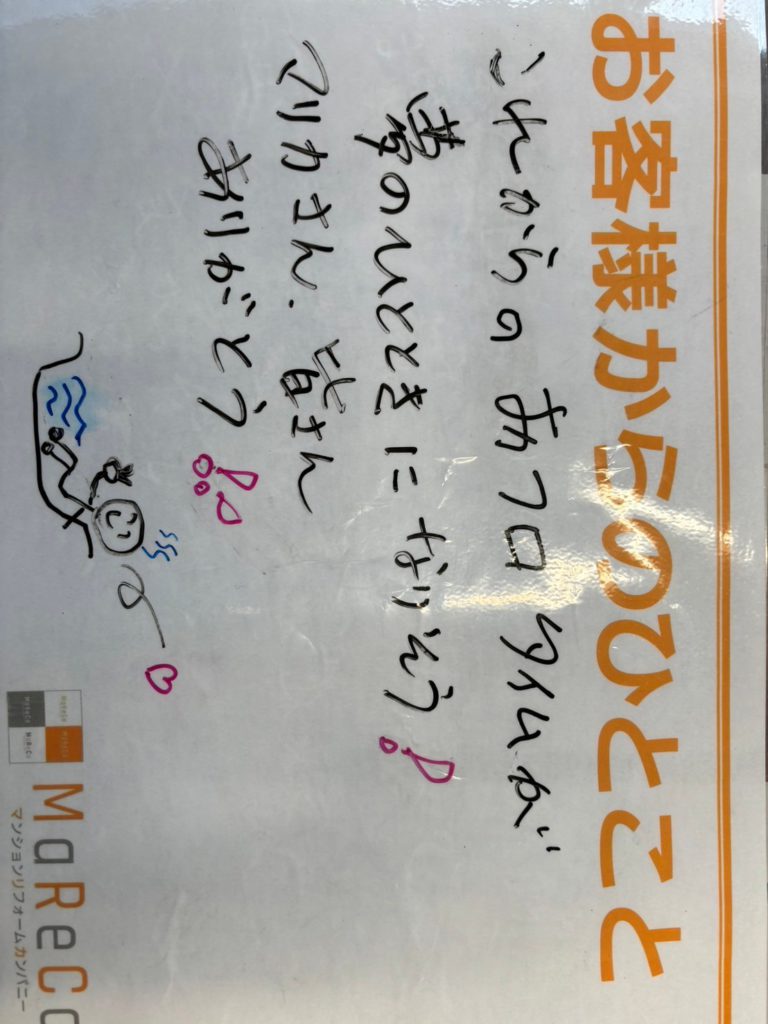 お客様からのひとこと
これからの おフロ タイムが
夢のひとときに なりそう!
マリカさん、皆さん
ありがとう!!
MaReCo
マンションリフォームカンパニー